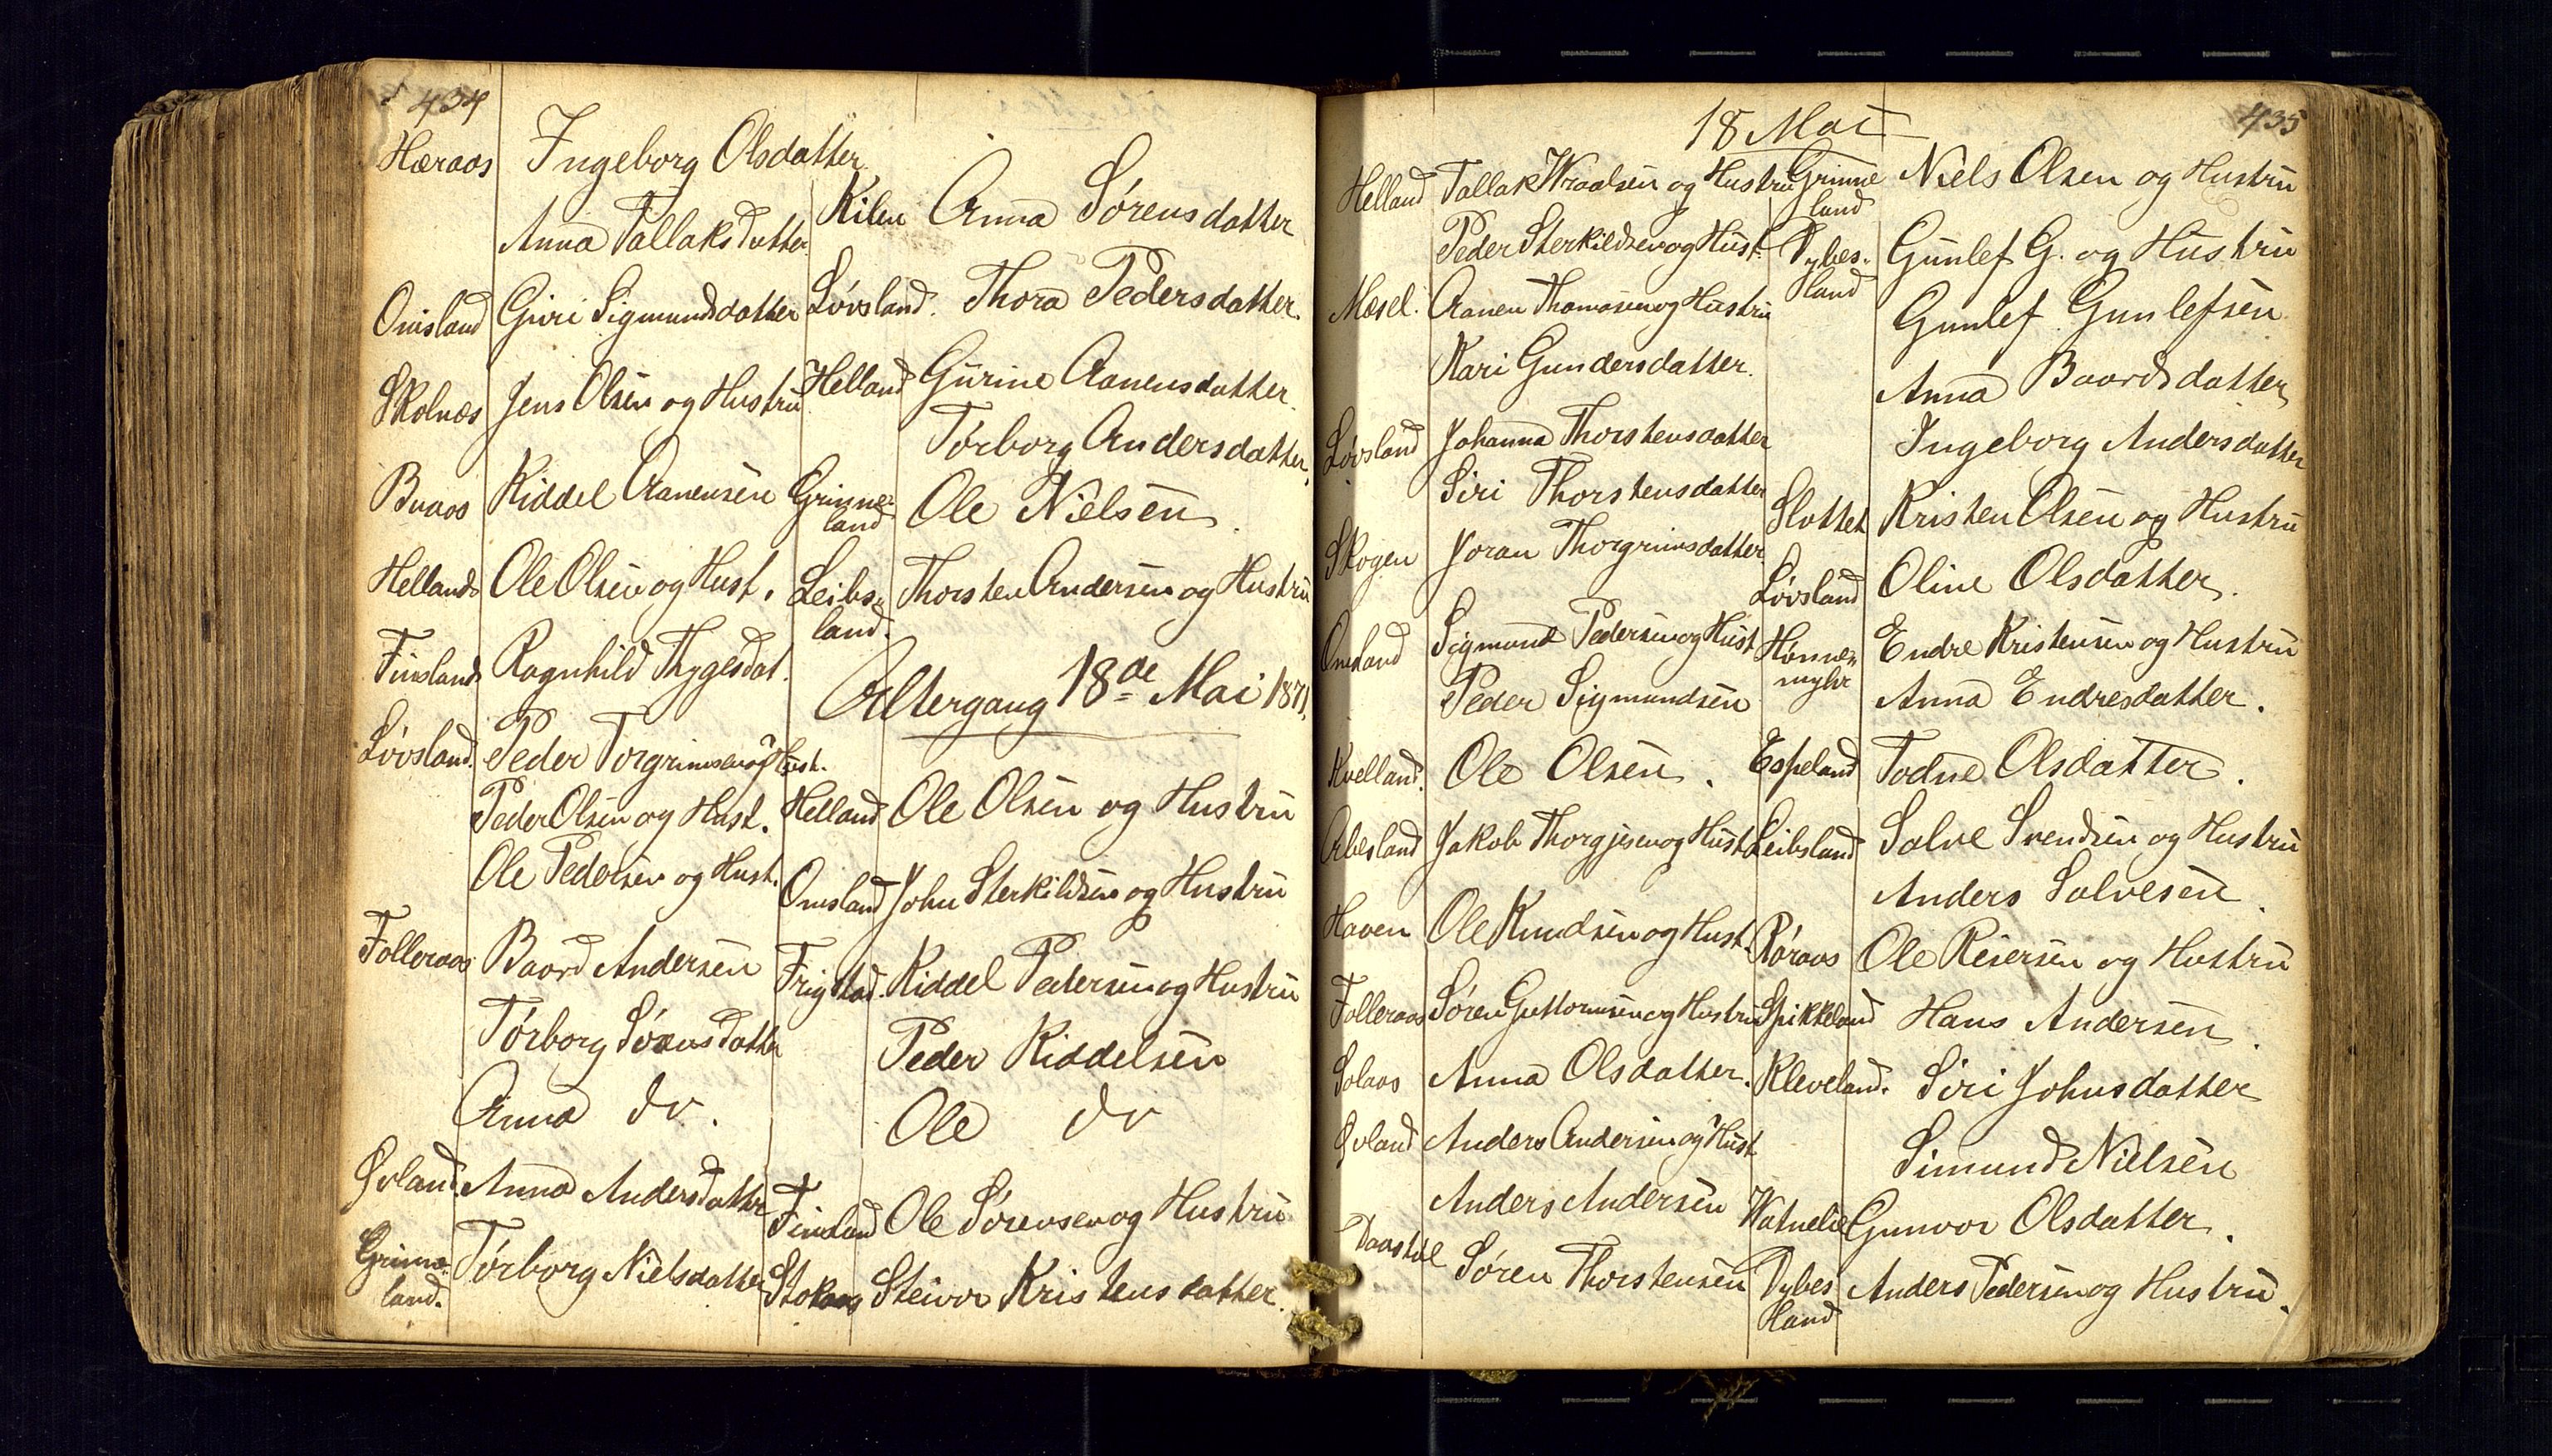 434
Hæraas Ingeborg Olsdatter
Anna Tallaksdatter
Omsland Guri Sigmundsdatter
Skolnæs Jens Olsen og Hustru
Buaas Kiddel Aanensen
Helland Ole Olsen og Hust.
Finsland Ragnhild Thygesdat.
Løvsland. Peder Torgrimsen og Hust.
Peder Olsen og Hust.
Ole Pedersen og Hust.
Folleraas Baard Andersen
Tørborg Sørensdatter
Anna do.
Øvland Anna Andersdatter
Grinne-
land. Tørborg Nielsdatter
Kilen Anna Sørensdatter
Løvsland. Thora Pedersdatter.
Helland Gurine Aanensdatter.
Tørborg Andersdatter.
Grinne-
land Ole Nielsen.
Leibs-
land. Thorsten Andersen og Hustru
Altergang 18de Mai 1871.
Helland Ole Olsen og Hustru
Omsland John Sterkildsen og Hustru
Frigstad. Kiddel Pedersen og Hustru
Peder Kiddelsen
Ole do
Finsland Ole Sørensen og Hustru
Stokaas Steivor Kristensdatter.
435
18 Mai
Helland Tallak Wraalsen og Hustru
Peder Sterkildsen og Hust.
Mæsel. Aanen Thomasen og Hustru
Kari Gundersdatter.
Løvsland Johanna Thorstensdatter
Siri Thorstensdatter
Skogen Joran Thorgrimsdatter
Omsland Sigmund Pedersen og Hust
Peder Sigmundsen
Kvelland. Ole Olsen.
Arbesland Jakob Thorgjesen og Hust
Haven Ole Knudsen og Hust.
Folleraas Søren Guttormsen og Hustru
Solaas Anna Olsdatter.
Øvland Anders Andersen og Hust
Anders Andersen
Daastøl Søren Thorstensen
Grinne
land Niels Olsen og Hustru
Dybes-
land Gunlef G. og Hustru
Gunlef Gunlefsen
Anna Baardsdatter
Ingeborg Andersdatter
Slottet Kristen Olsen og Hustru
Løvsland Oline Olsdatter.
Hønne-
myhr Endre Kristensen og Hustru
Anna Endresdatter.
Espeland Todne Olsdatter.
Leibsland Salve Svendsen og Hustru
Anders Salvesen.
Røraas Ole Reiersen og Hustru
Spikkeland Hans Andersen.
Kleveland. Siri Johnsdatter
Simund Nielsen
Watnelie Gunvor Olsdatter.
Dybes
land Anders Pedersen og Hustru.